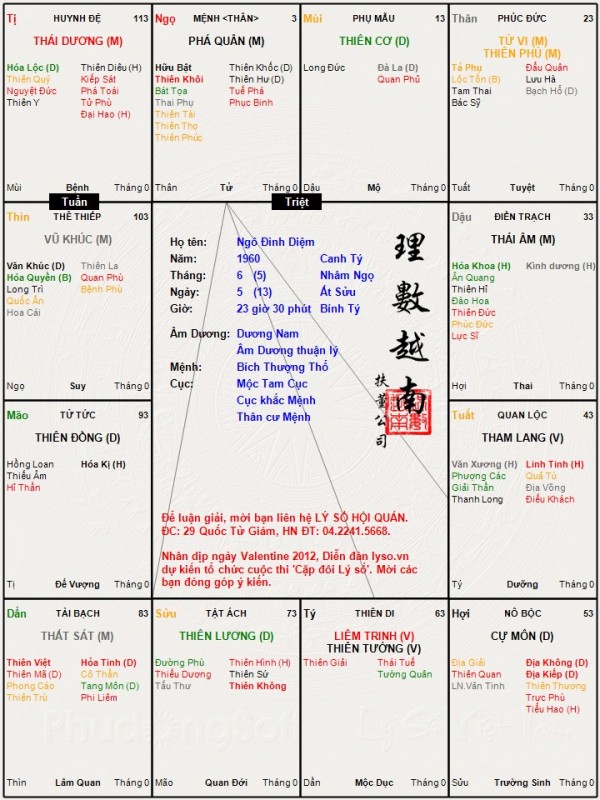 Tị HUYNH ĐỆ 113
THÁI DƯƠNG (M)
Hóa Lộc (D) Thiên Diêu (H)
Thiên Quý Kiếp Sát
Nguyệt Đức Phá Toái
Thiên Y Tử Phù
Đại Hao (H)
Mùi Bệnh Tháng 0
Ngọ MỆNH <THÂN> 3
PHÁ QUÂN (M)
Hữu Bật Thiên Khốc (D)
Thiên Khôi Thiên Hư (D)
Bát Tọa Tuế Phá
Thai Phụ Phục Binh
Thiên Tài
Thiên Thọ
Thiên Phúc
Thân Tử Tháng 0
Mùi PHỤ MẪU 13
THIÊN CƠ (D)
Long Đức Đà La (D)
Quan Phủ
Dậu Mộ Tháng 0
Thân PHÚC ĐỨC 23
TỬ VI (M)
THIÊN PHỦ (M)
Tả Phụ Đẩu Quân
Lộc Tồn (B) Lưu Hà
Tam Thai Bạch Hổ (D)
Bác Sỹ
Tuất Tuyệt Tháng 0
Tuần
Triệt
Thìn THÊ THIẾP 103
VŨ KHÚC (M)
Văn Khúc (D) Thiên La
Hóa Quyền (B) Quan Phù
Long Trì Bệnh Phù
Quốc Ấn
Hoa Cái
Ngọ Suy Tháng 0
Họ tên: Ngô Đình Diệm
Năm: 1960 Canh Tý
Tháng: 6 (5) Nhâm Ngọ
Ngày: 5 (13) Ất Sửu
Giờ: 23 giờ 30 phút Bính Tý
Âm Dương: Dương Nam
Âm Dương thuận lý
Mệnh: Bích Thượng Thổ
Cục: Mộc Tam Cục
Cục khắc Mệnh
Thân cư Mệnh
理數越南
扶董公司
Để luận giải, mời bạn liên hệ LÝ SỐ HỘI QUÁN.
ĐC: 29 Quốc Tử Giám, HN ĐT: 04.2241.5668.
Nhân dịp ngày Valentine 2012, Diễn đàn lyso.vn
dự kiến tổ chức cuộc thi 'Cặp đôi Lý số'. Mời các
bạn đóng góp ý kiến.
Dậu ĐIỀN TRẠCH 33
THÁI ÂM (M)
Hóa Khoa (H) Kình dương (H)
Ân Quang
Thiên Hỉ
Đào Hoa
Thiên Đức
Phúc Đức
Lực Sĩ
Hợi Thai Tháng 0
Mão TỬ TỨC 93
THIÊN ĐỒNG (D)
Hồng Loan Hóa Kị (H)
Thiếu Âm
Hỉ Thần
Tị Đế Vượng Tháng 0
Tuất QUAN LỘC 43
THAM LANG (V)
Văn Xương (H) Linh Tinh (H)
Phượng Các Quả Tú
Giải Thần Địa Võng
Thanh Long Điếu Khách
Tý Dưỡng Tháng 0
Dần TÀI BẠCH 83
THẤT SÁT (M)
Thiên Việt Hỏa Tinh (D)
Thiên Mã (D) Cô Thần
Phong Cáo Tang Môn (D)
Thiên Trù Phi Liêm
Thìn Lâm Quan Tháng 0
Sửu TẬT ÁCH 73
THIÊN LƯƠNG (D)
Đường Phù Thiên Hình (H)
Thiếu Dương Thiên Sứ
Tấu Thư Thiên Không
Mão Quan Đới Tháng 0
Tý THIÊN DI 63
LIÊM TRINH (V)
THIÊN TƯỚNG (V)
Thiên Giải Thái Tuế
Tướng Quân
Dần Mộc Dục Tháng 0
Hợi NÔ BỘC 53
CỰ MÔN (D)
Địa Giải Địa Không (D)
Thiên Quan Địa Kiếp (D)
LN.Văn Tinh Thiên Thương
Trực Phù
Tiểu Hao (H)
Sửu Trường Sinh Tháng 0